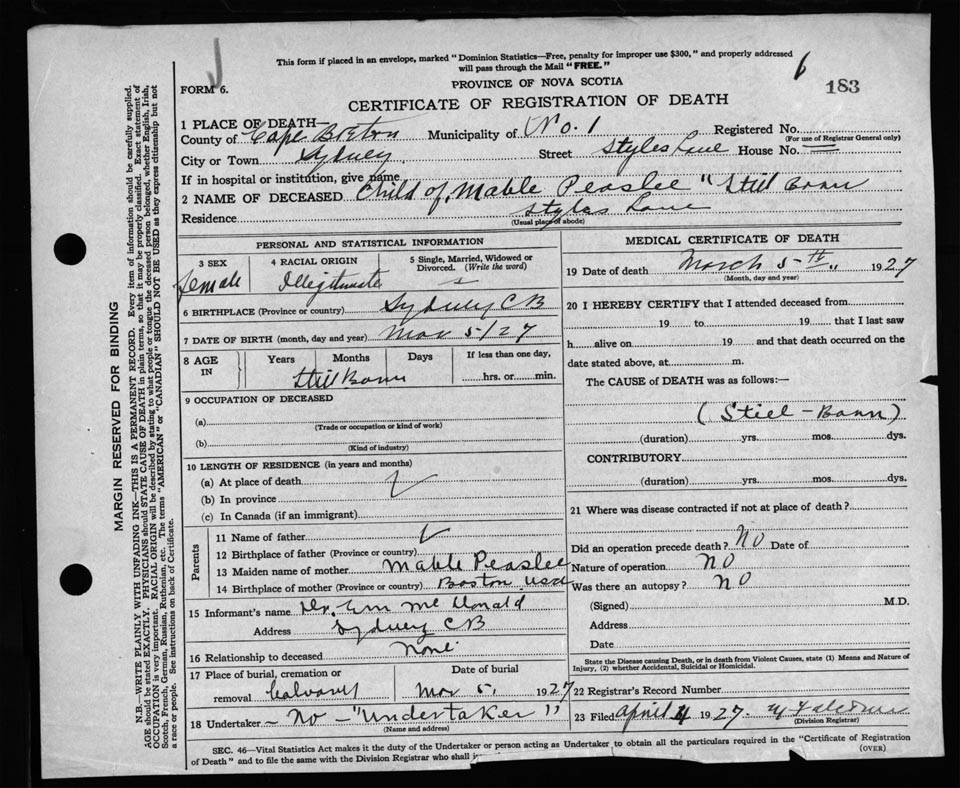 This form if placed in an envelope, marked "Dominion Statistics—Free, penalty for improper use $300," and properly addressed
will pass through the Mail "FREE."
J
6
183
FORM 6.
PROVINCE OF NOVA SCOTIA
CERTIFICATE OF REGISTRATION OF DEATH
1 PLACE OF DEATH
County of Cape Breton Municipality of No. 1 Registered No.
(For use of Registrar General only)
City or Town Sydney Street Styles Lane House No.
If in hospital or institution, give name
2 NAME OF DECEASED Child of Mable Peaslee "Still Born
Residence Styles Lane
(Usual place of abode)
PERSONAL AND STATISTICAL INFORMATION
3 SEX female
4 RACIAL ORIGIN Illigitimate
5 Single, Married, Widowed or Divorced. (Write the word)
6 BIRTHPLACE (Province or country) Sydney C B
7 DATE OF BIRTH (month, day and year) Mar 5/27
8 AGE IN Years Months Days If less than one day, hrs. or min.
Still Born
9 OCCUPATION OF DECEASED
(a)
(Trade or occupation or kind of work)
(b)
(Kind of industry)
10 LENGTH OF RESIDENCE (in years and months)
(a) At place of death
(b) In province
(c) In Canada (if an immigrant)
Parents
11 Name of father
12 Birthplace of father (Province or country)
13 Maiden name of mother Mable Peaslee
14 Birthplace of mother (Province or country) Boston USA
15 Informant's name Dr. Mc Donald
Address Sydney C B
16 Relationship to deceased None
17 Place of burial, cremation or removal Calvary
Date of burial Mar 5, 1927
18 Undertaker – No – "Undertaker"
(Name and address)
MEDICAL CERTIFICATE OF DEATH
19 Date of death March 5th 1927
(Month, day and year)
20 I HEREBY CERTIFY that I attended deceased from
19 to 19 that I last saw
h alive on 19 and that death occurred on the
date stated above, at m.
The CAUSE of DEATH was as follows:—
(Still–Born)
(duration) yrs. mos. dys.
CONTRIBUTORY
(duration) yrs. mos. dys.
21 Where was disease contracted if not at place of death?
Did an operation precede death? No Date of
Nature of operation No
Was there an autopsy? No
(Signed) M.D.
Address
Date
State the Disease causing Death, or in death from Violent Causes, state (1) Means and Nature of
Injury, (2) whether Accidental, Suicidal or Homicidal.
22 Registrar's Record Number
23 Filed April 4 1927
(Division Registrar)
SEC. 46—Vital Statistics Act makes it the duty of the Undertaker or person acting as Undertaker to obtain all the particulars required in the "Certificate of Registration
of Death" and to file the same with the Division Registrar who shall
(OVER)
MARGIN RESERVED FOR BINDING
N.B.—WRITE PLAINLY WITH UNFADING INK—THIS IS A PERMANENT RECORD. Every item of information should be carefully supplied.
AGE should be stated EXACTLY. PHYSICIANS should STATE CAUSE OF DEATH in plain terms, so that it may be properly classified. Exact statement of
OCCUPATION is very important. RACIAL ORIGIN will be described by stating to what people or tongue the deceased person belonged, whether English, Irish,
Scotch, French, German, Russian, Ruthenian, etc. The terms "AMERICAN" or "CANADIAN" SHOULD NOT BE USED as they express citizenship but not
a race or people. See instructions on back of Certificate.